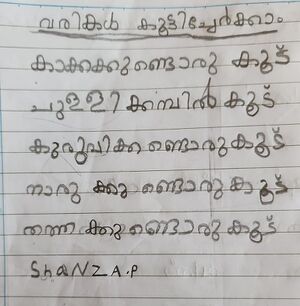 വരികൾ കൂട്ടിച്ചേർക്കാം
കാക്കക്കുണ്ടൊരു കൂട്
ചുള്ളി ക്കമ്പിൽ കൂട്
കുരുവിക്കുണ്ടൊരു കൂട്
നാരു ക്കു ണ്ടൊരു കൂട്
തത്ത ക്കു ണ്ടൊരു കൂട്
ShaNZ A.P